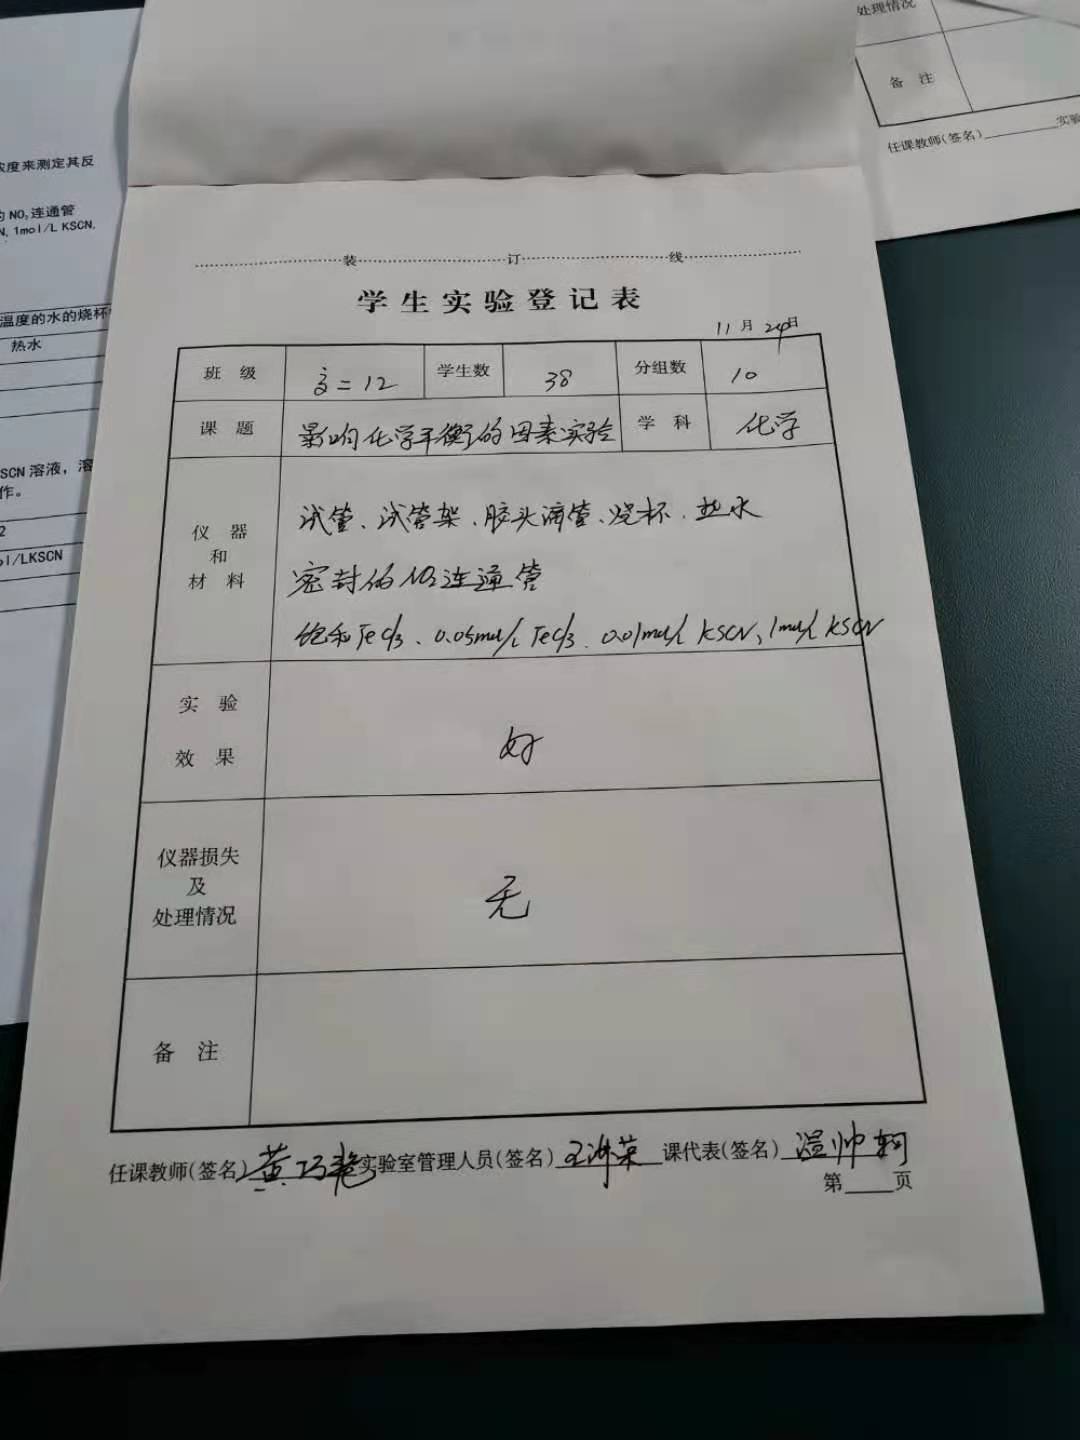 处理情况
备 注
任课教师(签名)________实验
浓度来测定其反
的 NO₂连通管
N, 1mol/L KSCN,
温度的水的烧杯中
热水
SCN 溶液, 溶
作。
2
ol/LKSCN
装 订 线
学生实验登记表
11 月 24日
班 级 高二12 学生数 38 分组数 10
课 题 影响化学平衡的因素实验 学 科 化学
仪 器 和 材 料
试管、试管架、胶头滴管、烧杯、热水
密封的NO₂连通管
饱和FeCl3、0.05mol/L FeCl3、0.01mol/L KSCN、1mol/L KSCN
实 验
效 果
好
仪器损失
及
处理情况
无
备 注
任课教师(签名) 黄巧艳 实验室管理人员(签名) 王 荣 课代表(签名) 温帅轲
第____页